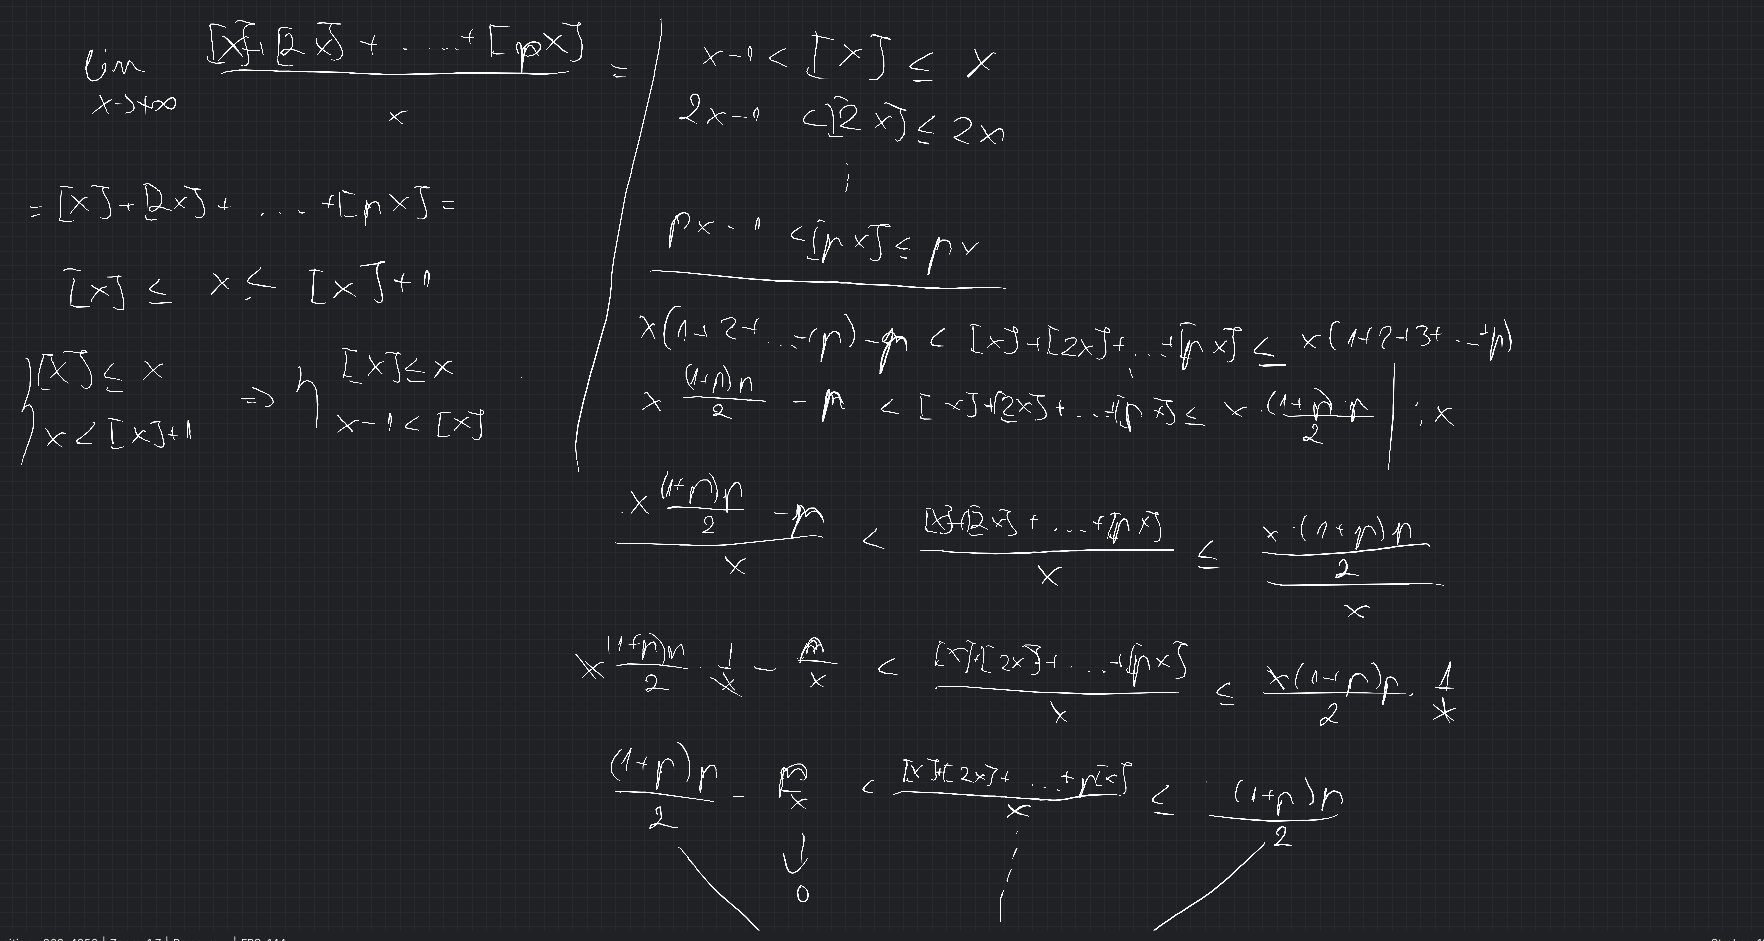 lim x→+∞ ([x]+[2x]+.....+[px])/x =
= [x]+[2x]+ .... +[px] =
[x] ≤ x ≤ [x]+1
{[x] ≤ x
x < [x]+1
=> { [x] ≤ x
x-1 < [x]
x-1 < [x] ≤ x
2x-1 < [2x] ≤ 2x
⋮
px-1 < [px] ≤ px
x(1+2+...+p)-p < [x]+[2x]+...+[px] ≤ x(1+2+3+...+p)
x (1+p)p/2 - p < [x]+[2x]+...+[px] ≤ x·(1+p)·p/2 | : x
(x (1+p)p/2 - p)/x < ([x]+[2x]+....+[px])/x ≤ (x·(1+p)p/2)/x
x (1+p)p/2 · 1/x - p/x < ([x]+[2x]+....+[px])/x ≤ x(1+p)p/2 · 1/x
(1+p)p/2 - p/x < ([x]+[2x]+....+p[x])/x ≤ (1+p)p/2
0